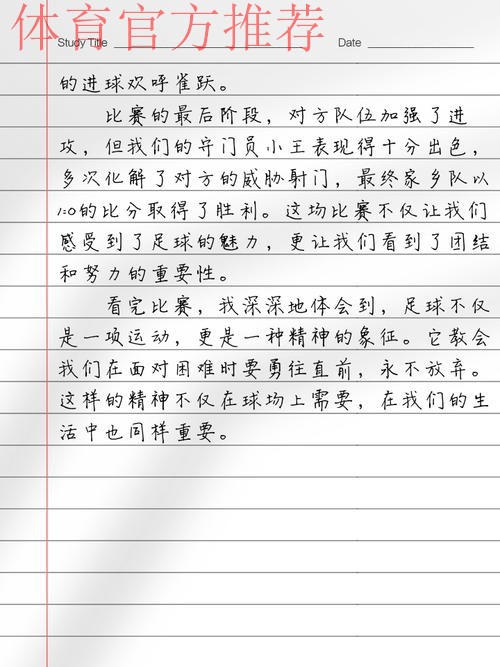 体育官方推荐
Study Title
Date
的进球欢呼雀跃。
比赛的最后阶段，对方队伍加强了进
攻，但我们的守门员小王表现得十分出色，
多次化解了对方的威胁射门，最终家乡队以
1:0的比分取得了胜利。这场比赛不仅让我们
感受到了足球的魅力，更让我们看到了团结
和努力的重要性。
看完比赛，我深深地体会到，足球不仅
是一项运动，更是一种精神的象征。它教会
我们在面对困难时要勇往直前，永不放弃。
这样的精神不仅在球场上需要，在我们的生
活中也同样重要。